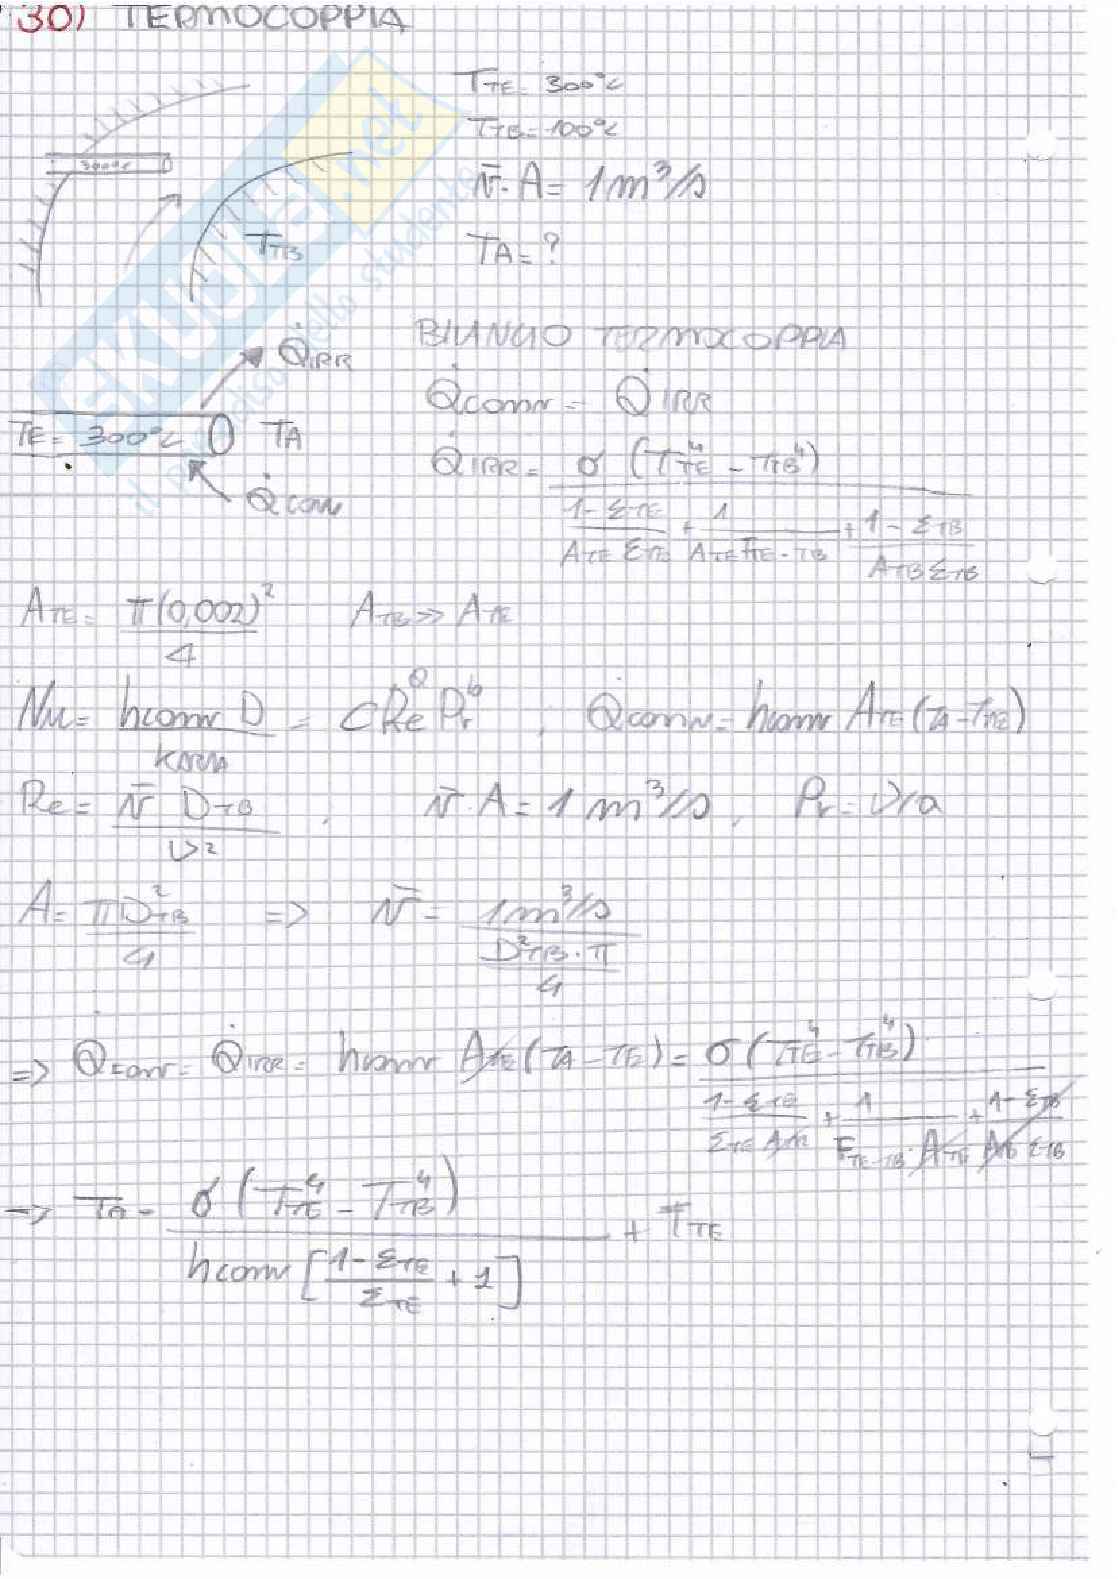 30) TERMOCOPPIA
T_TE = 300°C
T_TB = 100°C
300°C
v̄ · A = 1 m³/s
T_TB
T_A = ?
SKUOLA.net
il paradiso dello studente
BILANCIO TERMOCOPPIA
Q̇_IRR
Q̇_CONV = Q̇_IRR
TE = 300°C T_A
Q̇_CONV
Q̇_IRR = σ (T_TE⁴ - T_TB⁴) / ( (1-ε_TE)/(A_TE ε_TE) + 1/(A_TE F_TE-TB) + (1-ε_TB)/(A_TB ε_TB) )
A_TE = π(0,002)² / 4 A_TB >> A_TE
Nu = h_conv D / k_ARIA = C Re^a Pr^b ; Q̇_conv = h_conv A_TE (T_A - T_TE)
Re = v̄ D_TB / ν² ; v̄ · A = 1 m³/s , Pr = ν/a
A = π D²_TB / 4 => v̄ = 1 m³/s / ( D²_TB · π / 4 )
=> Q̇_conv = Q̇_IRR = h_conv A_TE (T_A - T_E) = σ (T_TE⁴ - T_TB⁴) / ( (1-ε_TE)/(ε_TE A_TE) + 1/(F_TE-TB · A_TE) + (1-ε_TB)/(A_TB ε_TB) )
=> T_A = σ (T_TE⁴ - T_TB⁴) / ( h_conv [ (1-ε_TE)/ε_TE + 1 ] ) + T_TE